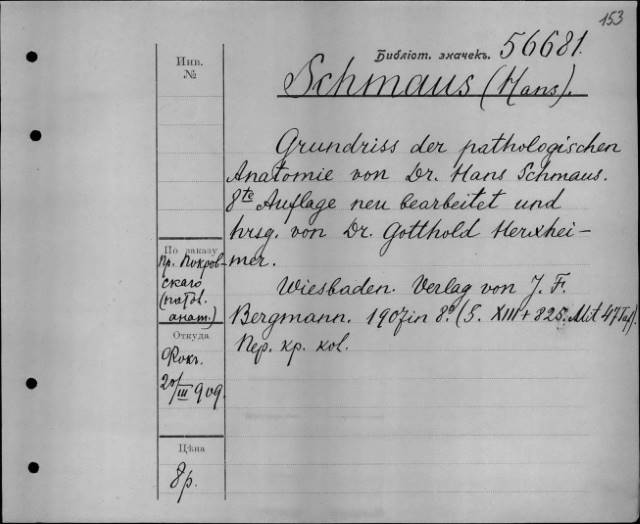 153
Библіот. значекъ. 56681.
Инв.
№
Schmaus (Hans).
Grundriss der pathologischen
Anatomie von Dr. Hans Schmaus.
8te Auflage neu bearbeitet und
hrsg. von Dr. Gotthold Herxhei-
mer.
Wiesbaden. Verlag von J. F.
Bergmann. 1907 in 8º (S. XIII + 825. Mit 47 Taf).
Пер. кр. кол.
По заказу
Пр. Покров-
скаго
(патол.
анат.)
Откуда
20/III 909.
Цѣна
8р.